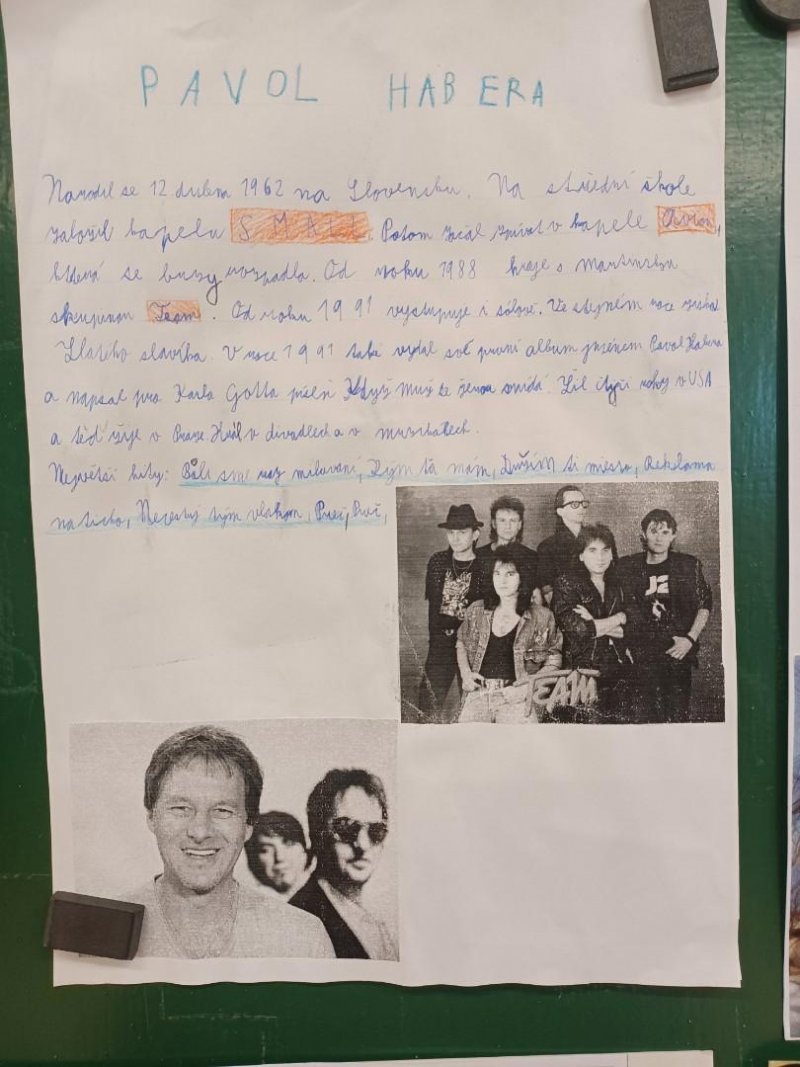 PAVOL HABERA
Narodil se 12 dubna 1962 na Slovensku. Na střední škole
založil kapelu SMALL. Potom začal zpívat v kapele Avion,
která se brzy rozpadla. Od roku 1988 hraje s martinskou
skupinou Team. Od roku 1991 vystupuje i sólově. Ve stejném roce získal
Zlatého slavíka. V roce 1991 také vydal své první album jménem Pavol Habera
a napsal pro Karla Gotta píseň Když muž se ženou snídá. Žil čtyři roky v USA
a teď žije v Praze. Hrál v divadlech a v muzikálech.
Největší hity: Báli sme raz milovaní, Kým ťa mám, Držím ti miesto, Reklama
na ticho, Necestuj tým vlakom, Preč, Preč,
TEAM
U2